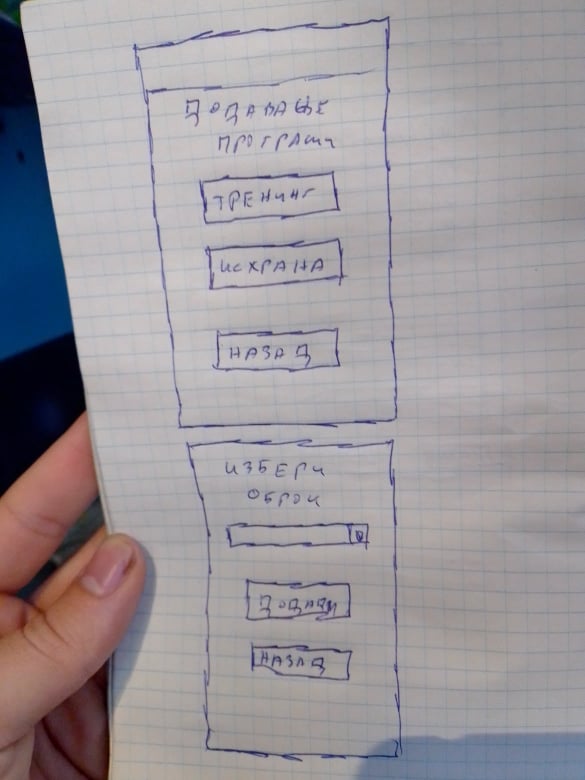 ДОДАВАЊЕ
ПРОГРАМИ
ТРЕНИНГ
ИСХРАНА
НАЗАД
ИЗБЕРИ
ОБРОК
ДОДАДИ
НАЗАД